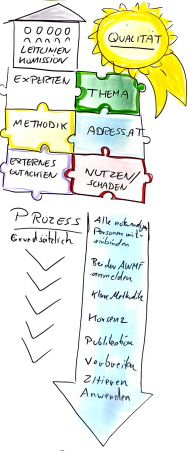 LEITLINIEN
KOMISSION
QUALITÄT
EXPERTEN
THEMA
METHODIK
ADRESSAT
EXTERNES
GUTACHTEN
NUTZEN/
SCHADEN
PROZESS
Grundsätzlich
Alle notwendigen
Personen mit-
einbinden
Bei der AWMF
anmelden
Klare Methodik
Konsenz
Publikation
Verbreiten
Zitieren
Anwenden